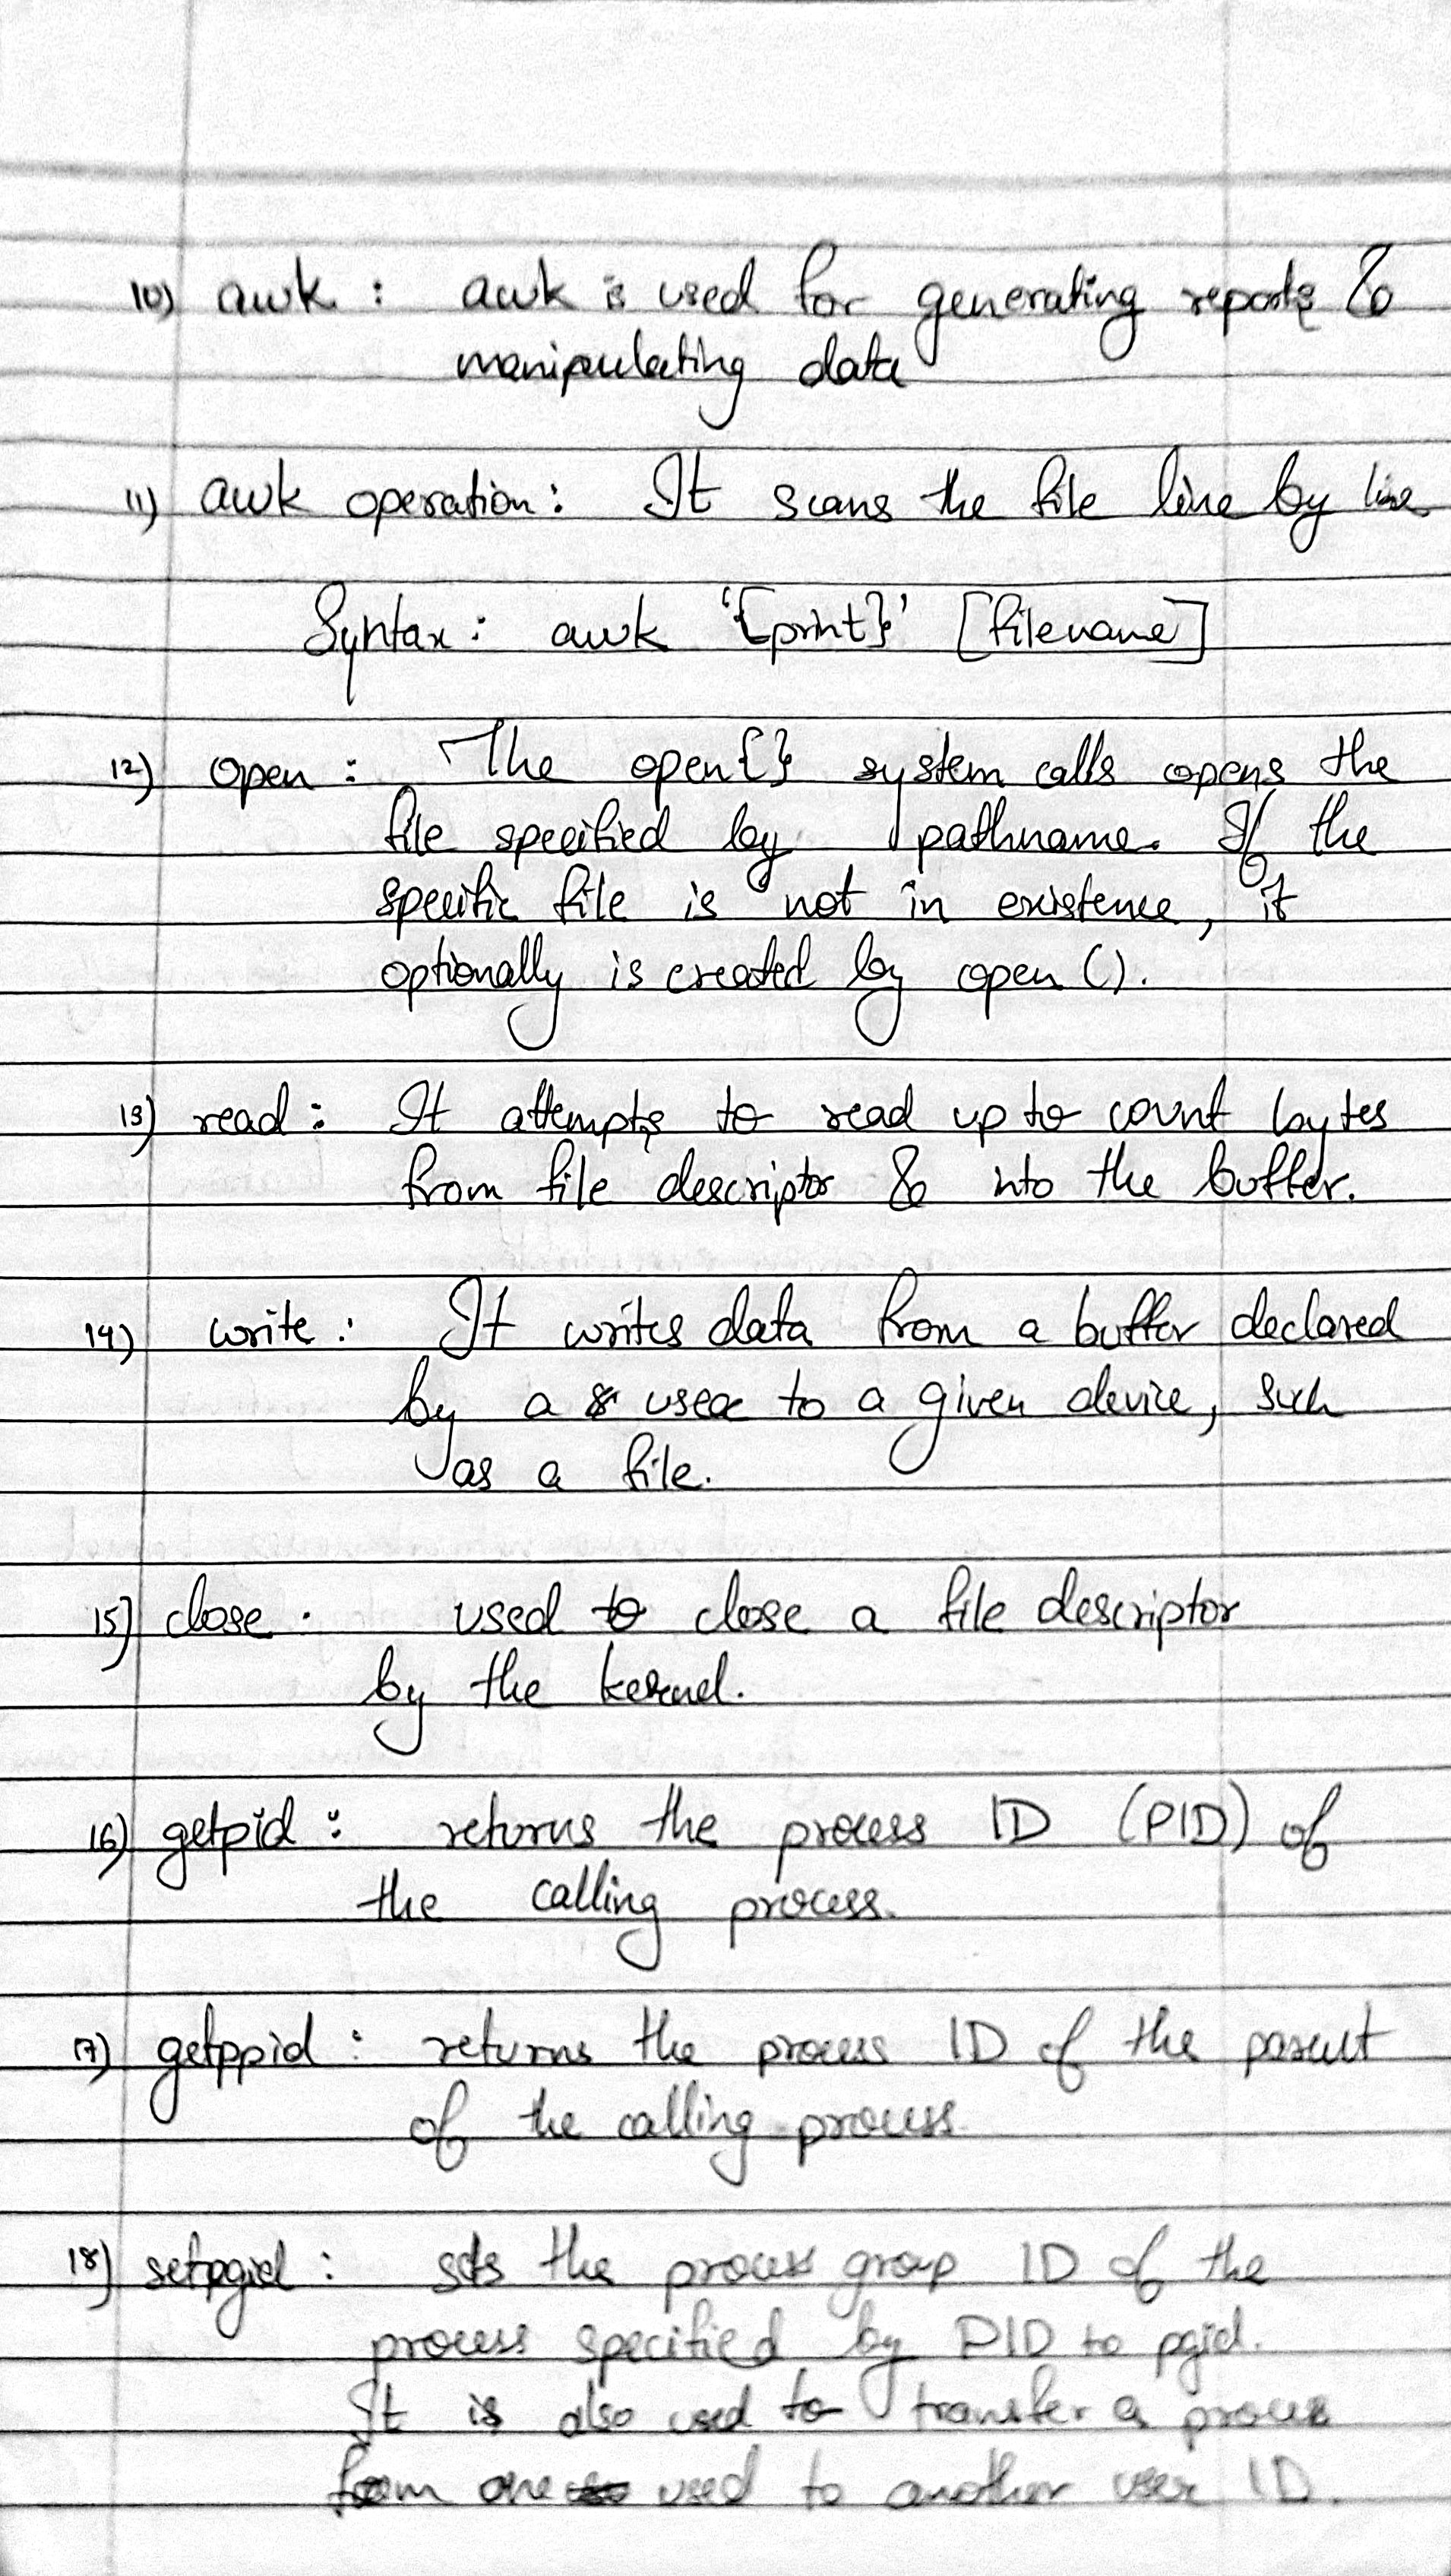 10) awk : awk is used for generating reports &
manipulating data
11) awk operation : It scans the file line by line
Syntax : awk '{print}' [filename]
12) open : The open{} system calls opens the
file specified by pathname. If the
specific file is not in existence, it
optionally is created by open ().
13) read : It attempts to read up to count bytes
from file descriptor & into the buffer.
14) write : It writes data from a buffer declared
by a user to a given device, such
as a file.
15) close : used to close a file descriptor
by the kernel.
16) getpid : returns the process ID (PID) of
the calling process.
17) getppid : returns the process ID of the parent
of the calling process.
18) setpgid : sets the process group ID of the
process specified by PID to pgid.
It is also used to transfer a process
from one used to another user ID.